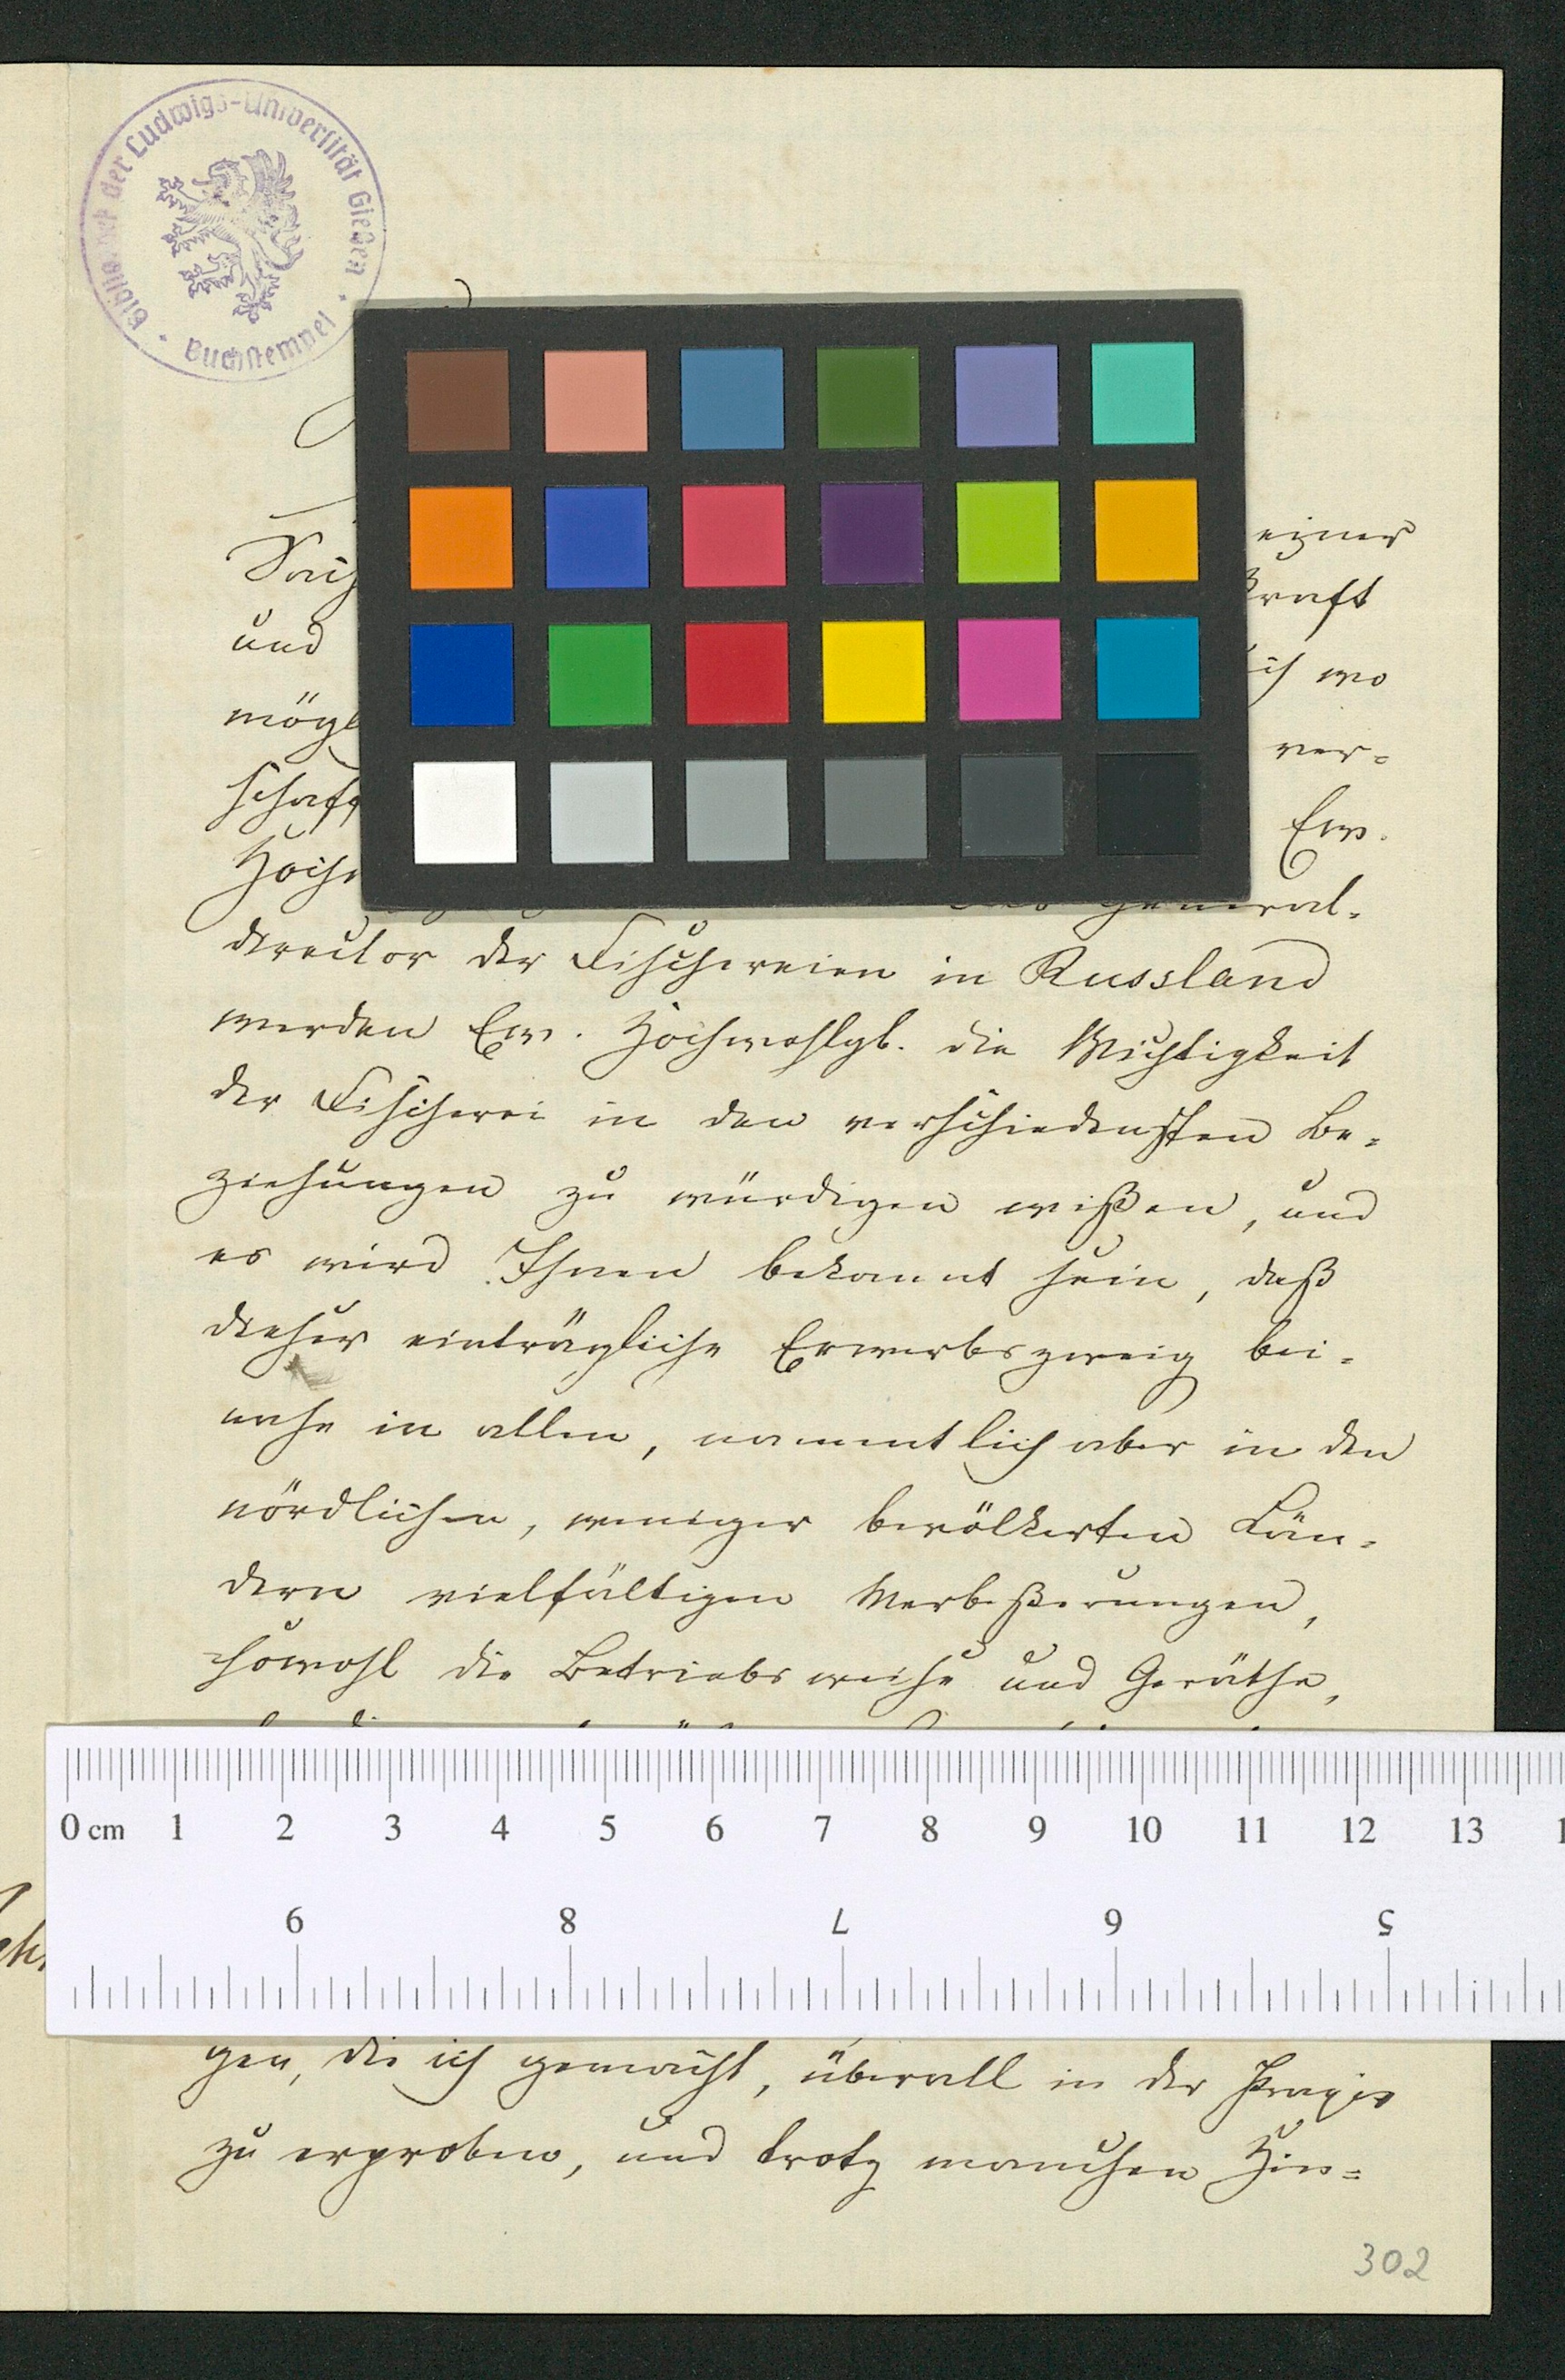 Bibliothek der Ludwigs-Universität Gießen
Buchstempel
einer
und kraft
ich wo
mög
ver-
schaff Ew.
Hoch
General-
director der Fischereien in Russland
werden Ew. Hochwohlgb. die Wichtigkeit
der Fischerei in den verschiedensten Be-
ziehungen zu würdigen wißen, und
es wird Ihnen bekannt sein, daß
dieser einträgliche Erwerbszweig bei-
nahe in allen, namentlich aber in den
nördlichen, weniger bevölkerten Län-
dern vielfältigen Verbeßerungen,
sowohl die Betriebsweise und Geräthe,
0 cm 1 2 3 4 5 6 7 8 9 10 11 12 13 1
9 8 7 6 5
gen, die ich gemacht, überall in der Praxis
zu erproben, und trotz manchen Hin-
302